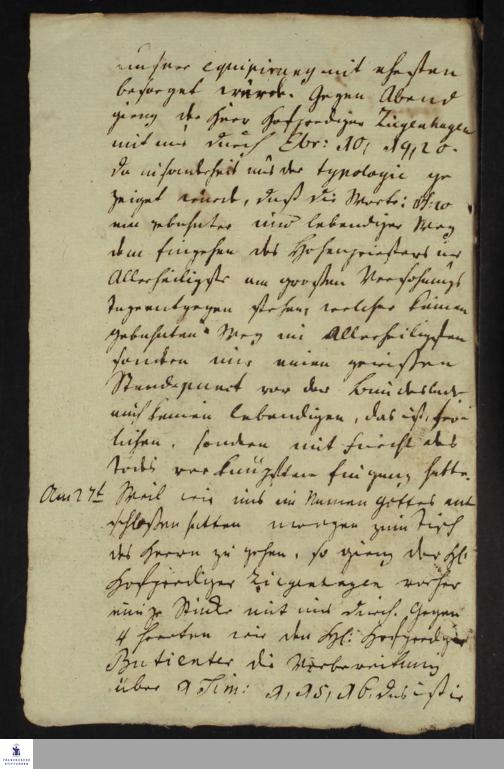 unsrer equipirung mit ehesten
besorget würde. Gegen Abend
gieng der Herr Hofprediger Ziegenhagen
mit uns durch Ebr: 10, 19, 20.
da insonderheit aus der typologie ge
zeiget wurde, daß die Worte:
ein gebahnter und lebendiger Weg
dem Eingehen des Hohenpriesters ins
Allerheiligste am großen Versöhnungs
Tage entgegen stehen, welcher keinen
gebahnten Weg im Allerheiligsten
sondern nur einen gewissen
Standpunct vor der Bundeslade
auch keinen lebendigen, das ist, frö-
lichen, sondern mit Furcht des
Todes verknüpften Eingang hatte.
Am 27t. Weil wir uns im Namen Gottes ent
schloßen hatten morgen zum Tisch
des Herrn zu gehen, so gieng der H:
Hofprediger Ziegenhagen vorher
einige Stücke mit uns durch. Gegen
4 hoerten wir den H: Hofprediger
Butienter die Vorbereitung
über 1 Tim: 1, 15, 16. das ist ie
FRANCKESCHE
STIFTUNGEN